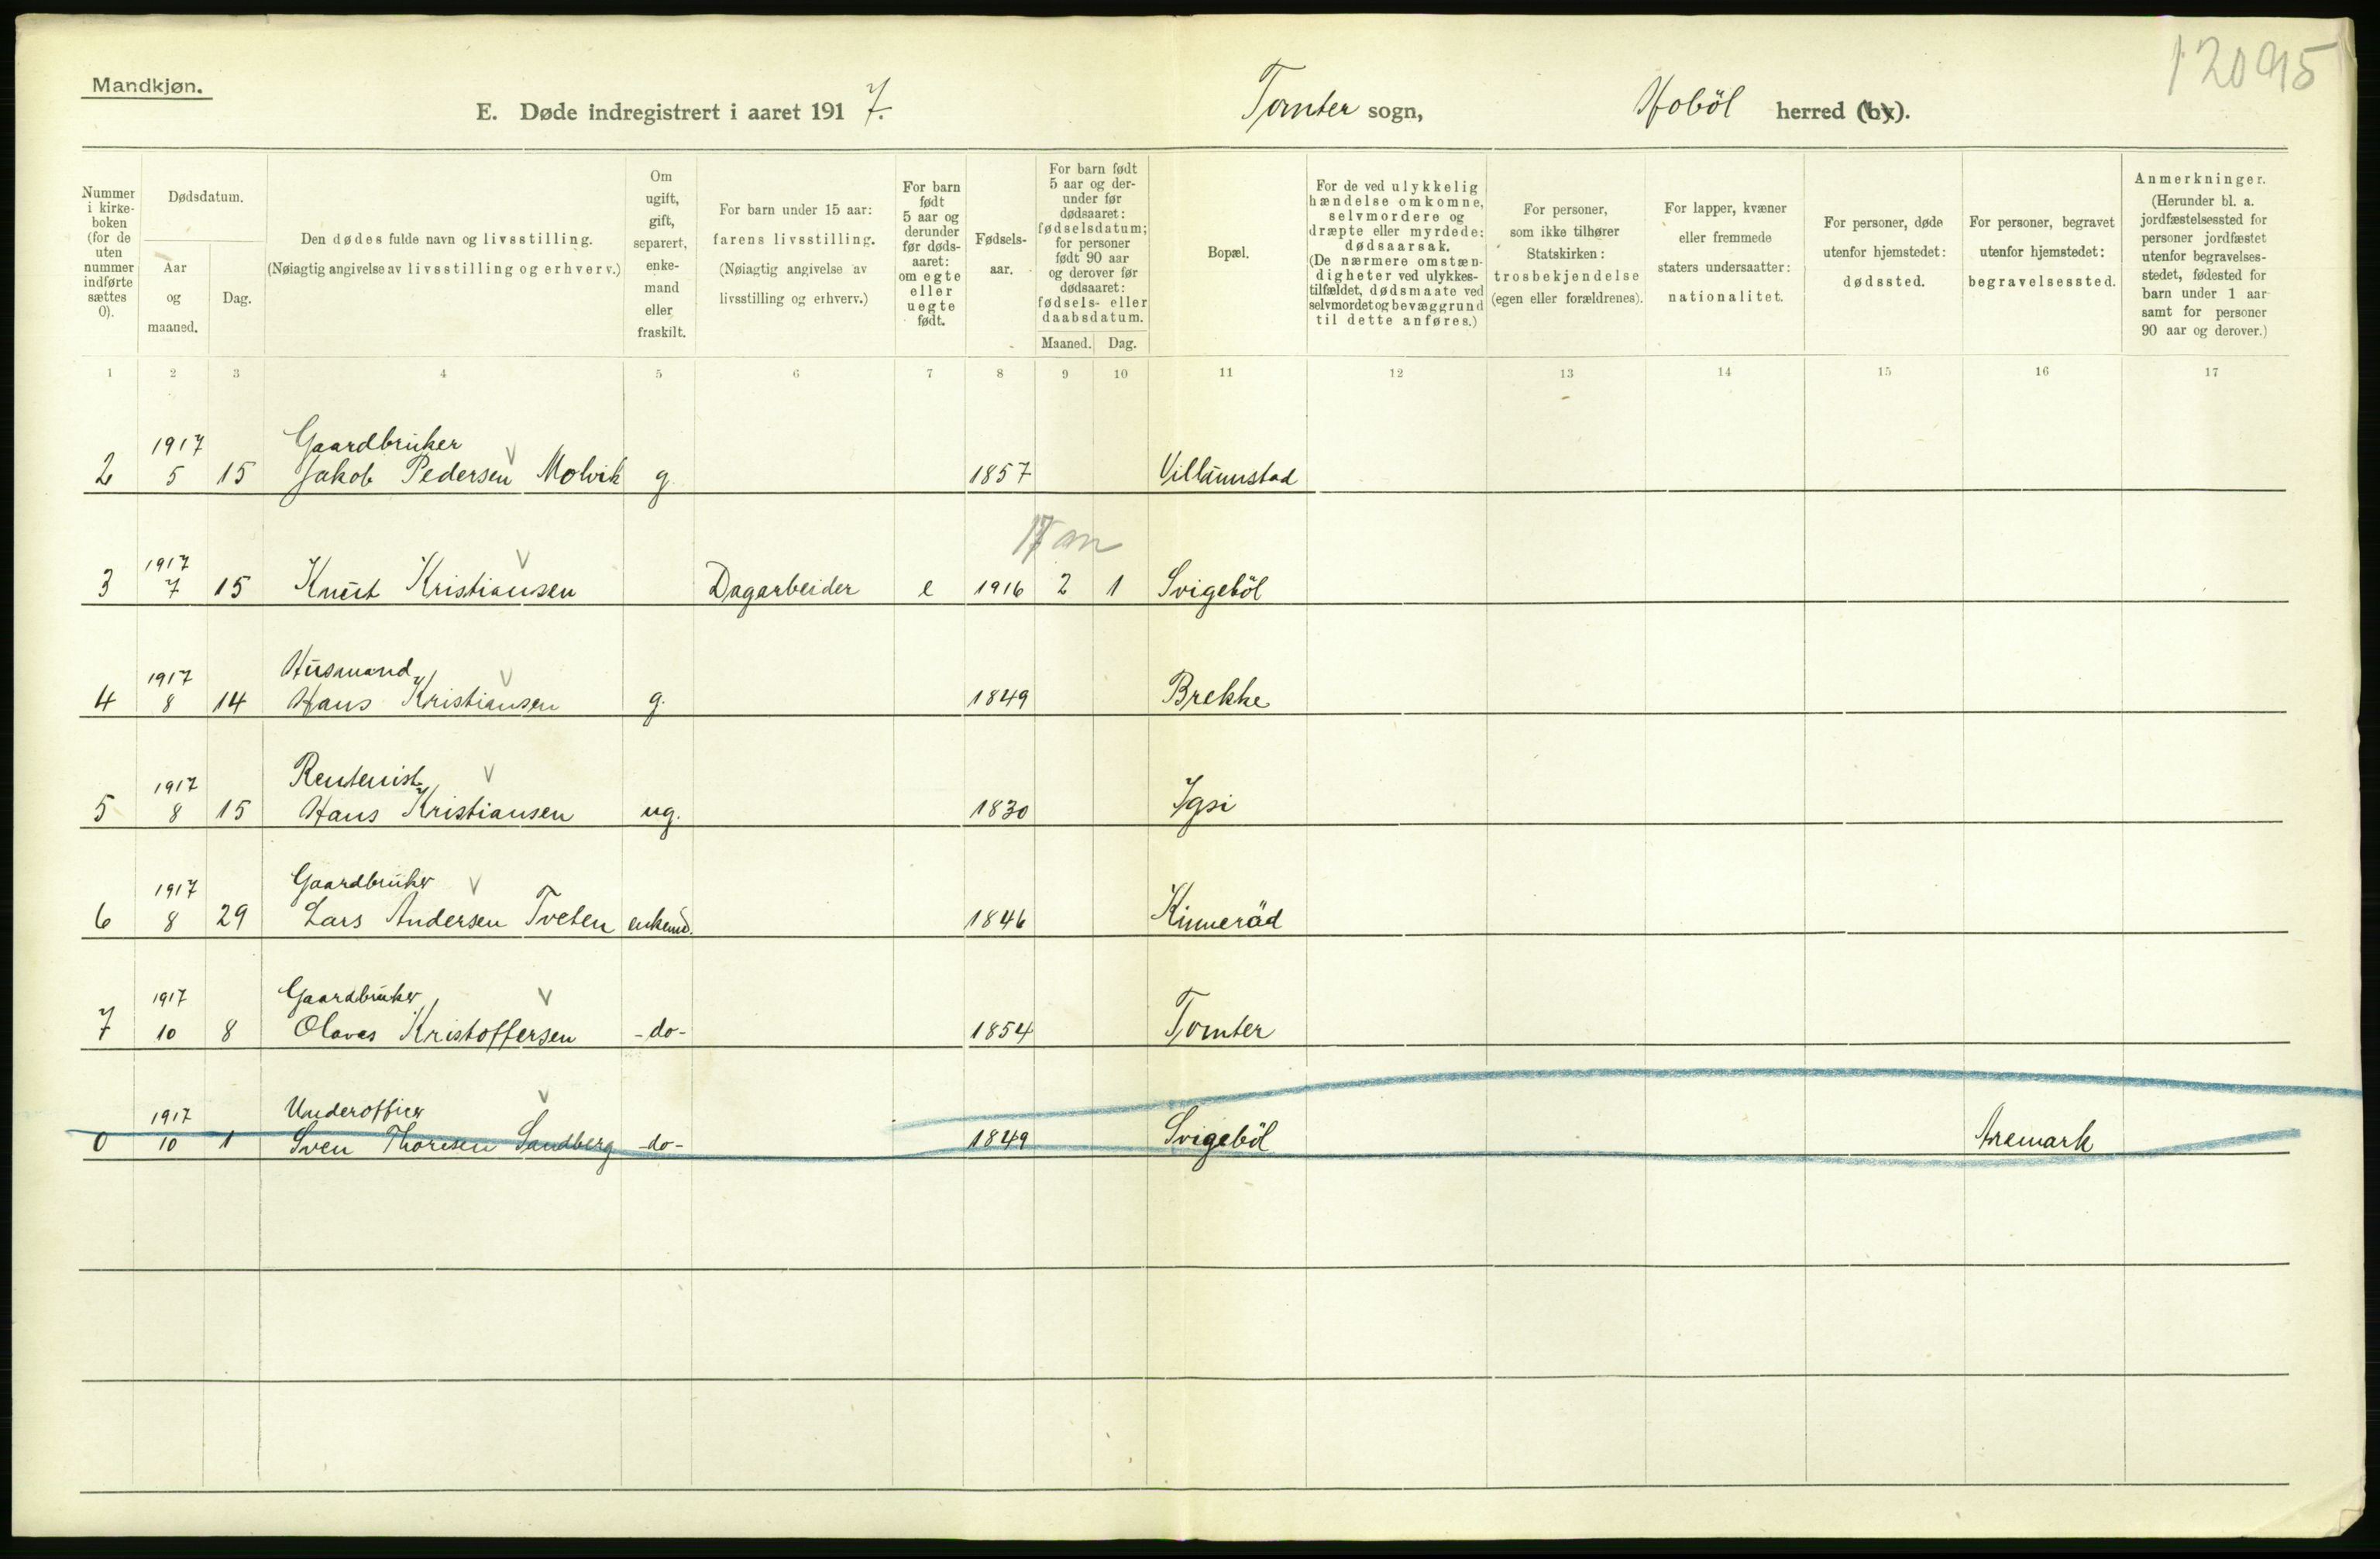 12095
Mandkjøn.
E. Døde indregistrert i aaret 1917. Tomter sogn, Hoböl herred (by).
Nummer i kirke-boken (for de uten nummer indførte sættes 0).
Dødsdatum.
Aar og maaned.
Dag.
Den dødes fulde navn og livsstilling.
(Nøiagtig angivelse av livsstilling og erhverv.)
Om ugift, gift, separert, enke-mand eller fraskilt.
For barn under 15 aar: farens livsstilling.
(Nøiagtig angivelse av livsstilling og erhverv.)
For barn født 5 aar og derunder før døds-aaret: om egte eller uegte født.
Fødsels-aar.
For barn født 5 aar og der-under før dødsaaret: fødselsdatum; for personer født 90 aar og derover før dødsaaret: fødsels- eller daabsdatum.
Maaned. Dag.
Bopæl.
For de ved ulykkelig hændelse omkomne, selvmordere og dræpte eller myrdede: dødsaarsak.
(De nærmere omstæn-digheter ved ulykkes-tilfældet, dødsmaate ved selvmordet og bevæggrund til dette anføres.)
For personer, som ikke tilhører Statskirken: trosbekjendelse (egen eller forældrenes).
For lapper, kvæner eller fremmede staters undersaatter: nationalitet.
For personer, døde utenfor hjemstedet: dødssted.
For personer, begravet utenfor hjemstedet: begravelsessted.
Anmerkninger.
(Herunder bl. a. jordfæstelsessted for personer jordfæstet utenfor begravelses-stedet, fødested for barn under 1 aar samt for personer 90 aar og derover.)
1 2 3 4 5 6 7 8 9 10 11 12 13 14 15 16 17
1917 Gaardbruker
2 5 15 Jakob Pedersen Molvik g. 1857 Villaunstad
17 m
1917
3 7 15 Knut Kristiansen Dagarbeider e 1916 2 1 Svigeböl
1917 Husmand
4 8 14 Hans Kristiansen g. 1849 Brekke
1917 Rentenist
5 8 15 Hans Kristiansen ug. 1830 Igsi
1917 Gaardbruker
6 8 29 Lars Andersen Tveten enkemd. 1846 Kinneröd
1917 Gaardbruker
7 10 8 Olaves Kristoffersen -do- 1854 Tomter
1917 Underofficer
0 10 1 Sven Thoresen Sandberg -do- 1849 Svigeböl Aremark